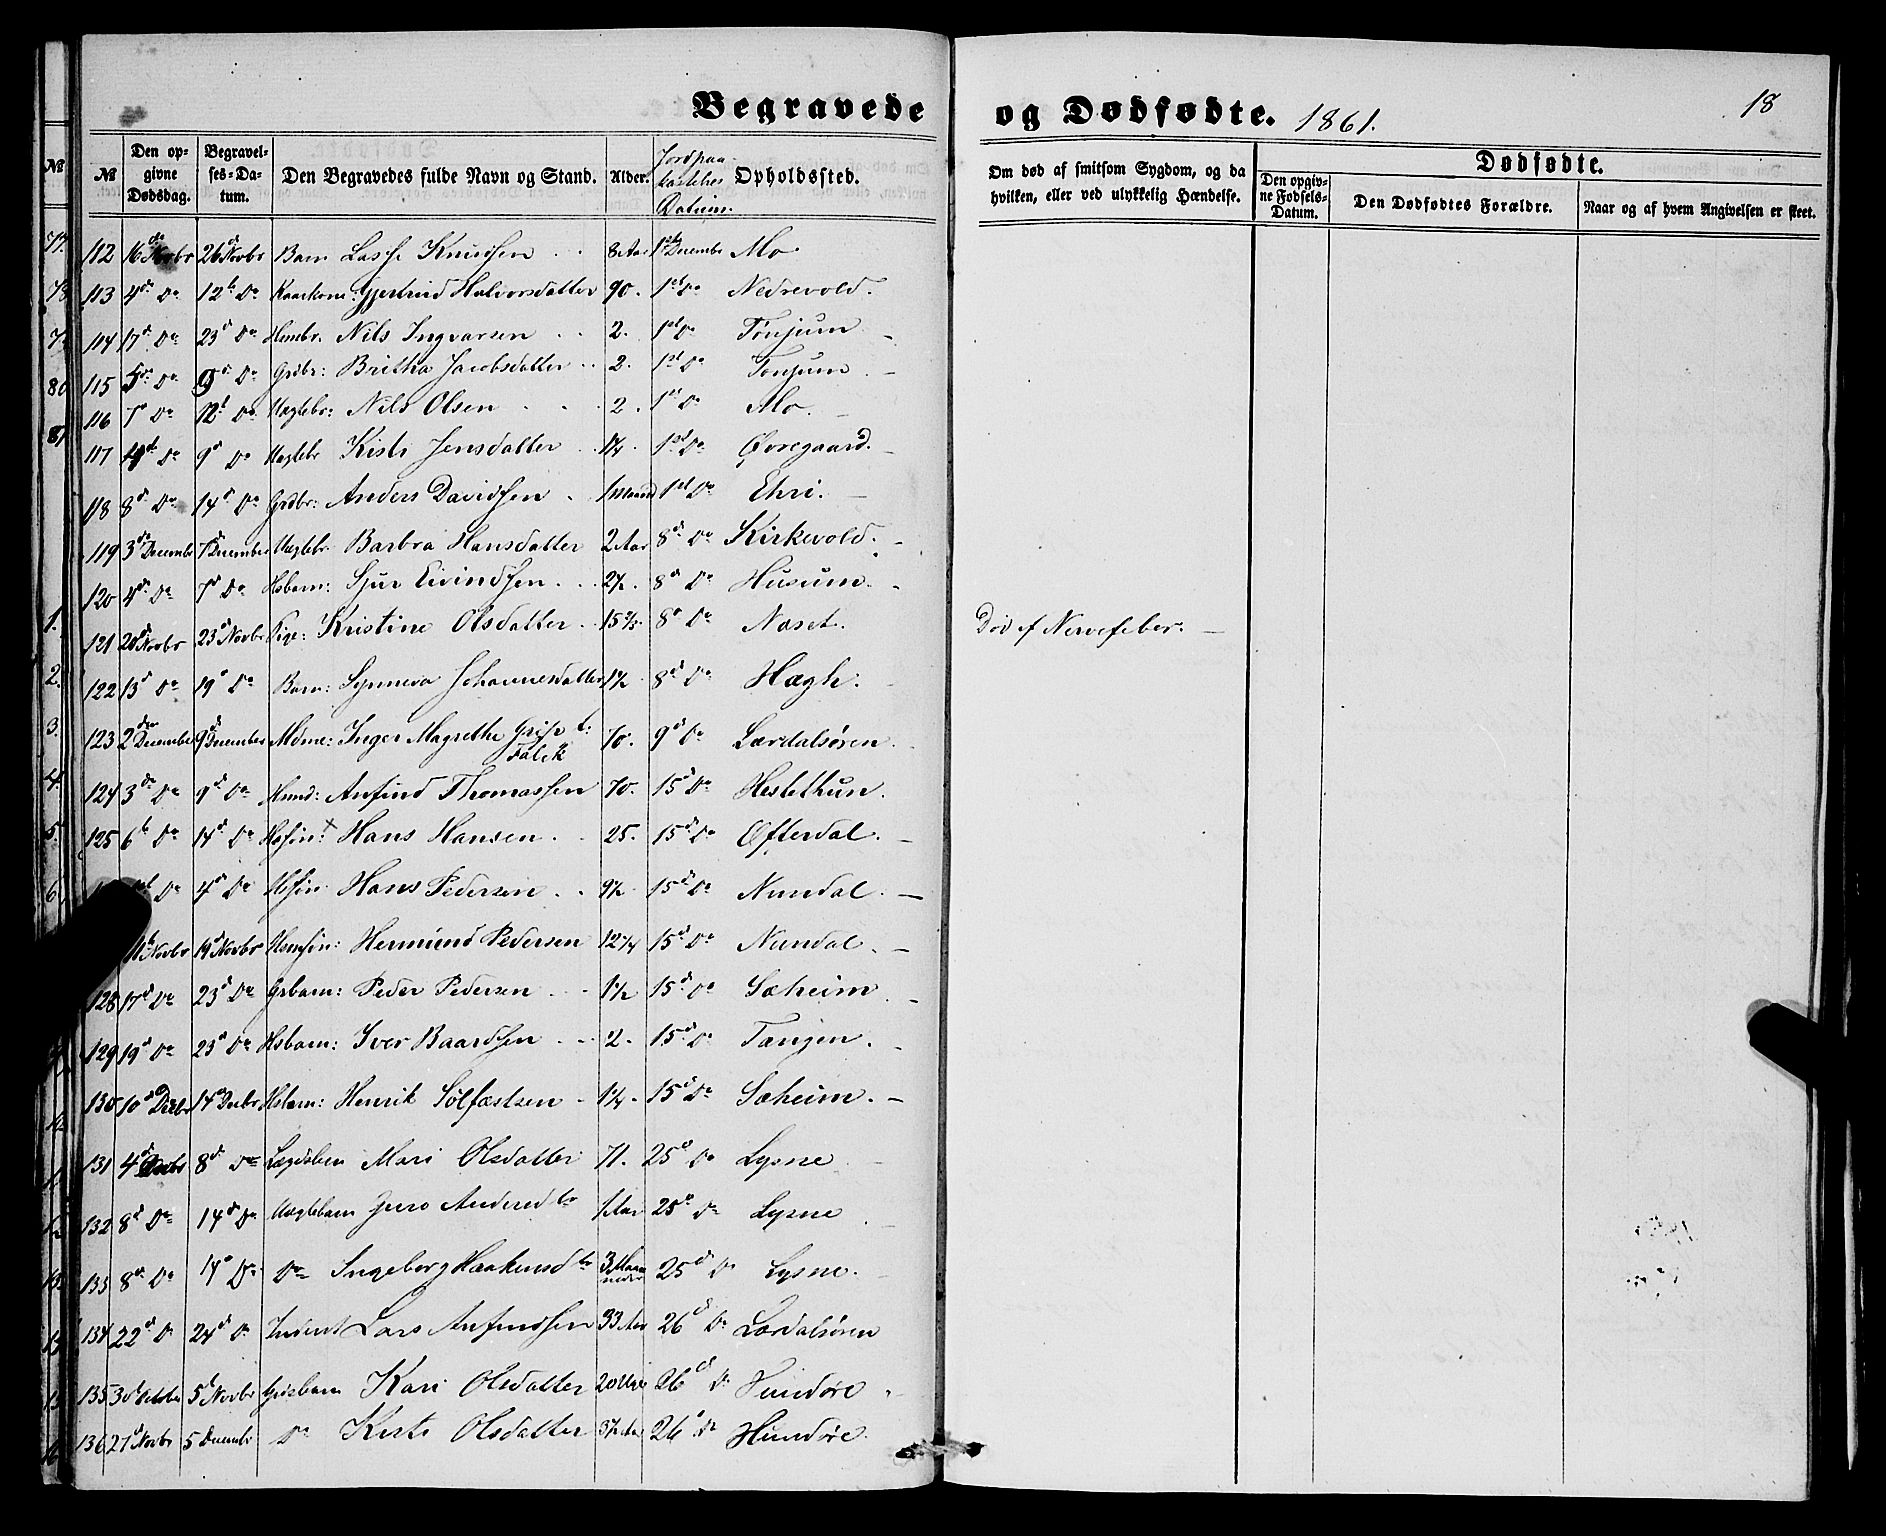 Begravede og Dødfødte. 1861. 18
№ Den opgivne Dødsdag. Begravelses-Datum. Den Begravedes fulde Navn og Stand. Alder. Jordpaakastelses Datum. Opholdssted. Om død af smitsom Sygdom, og da hvilken, eller ved ulykkelig Hændelse. Dødfødte. Den opgivne Fødsels-Datum. Den Dødfødtes Forældre. Naar og af hvem Angivelsen er skeet.
112 16de Novbr 26d Novbr Barn Lasse Knudsen 8 Aar 1ste Decembr Mo
113 4de Do 12te Do Kaarkone: Gjertrud Halvorsdatter 90. 1st Do Nedrevold.
114 17d Do 23d Do Nils Ingvarsen 2. 1st Do Tønjum
115 5te Do 9d Do Grdbr: Britha Jacobsdatter 2. 1st Do Tønjum
116 7d Do 12t Do Nils Olsen 2. 1st Do Mo.
117 4de Do 9d Do Kisti Jensdatter 1¼. 1st Do Øvregaard.
118 8d Do 14d Do Grdbr: Anders Davidsen 1 Maaned 1st Do Ehri.
119 3de Decembr 7d December Barbra Hansdatter 2 Aar 8d Do Kirkevold.
120 4de Do 7d Do Hsbarn: Sjur Eivindsen 2½. 8d Do Husum.
121 20d Novbr 23d Novbr Pige: Kristine Olsdatter 15 8d Do Næset. Død af Nervefeber.
122 13d Do 19d Do Barn: Synneva Johannesdatter 1½ 8d Do Hægh.
123 2den December 9d December Mdme: Inger Magrethe Friis f. Falck 70. 9d Do Lærdalsøren.
124 3de Do 9d Do Anfind Thomassen 70. 15d Do Hestethun.
125 6t Do 14d Do Hans Hansen. 25. 15d Do Ofterdal.
Do 4d Do Hans Pedersen 9½ 15d Do Nundal.
11t Novbr 19d Novbr Hermund Pedersen 12¼ 15d Do Nundal.
128 17d Do 23d Do Grbarn: Peder Pedersen 1½ 15d Do Sæheim
129 19d Do 23d Do Hsbarn: Iver Baardsen 2. 15d Do Tangen.
130 10d Decbr 14d Decbr Hsbarn: Henrik Sølfæstsen 1¼. 15d Do Sæheim.
131 4d Decbr 8d Do Lægdslem Mari Olsdatter 71. 25d Do Lysne
132 8d Do 14d Do Guro Andersdtr 1 Aar 25d Do Lysne
133 8de Do 14d Do Do Ingeborg Haakensdtr 3 Maaneder 25d Do Lysne.
134 22d Do 24d Do Inderst Lars Anfindsen 33 Aar 26d Do Lærdalsøren
135 30d October 5d Novbr Grdsbarn Kari Olsdatter 20 Uger 26d Do Hundøre
136 27d Novbr 5 Decembr Do Kisti Olsdatter 3½ Aar 26d Do Hundøre.